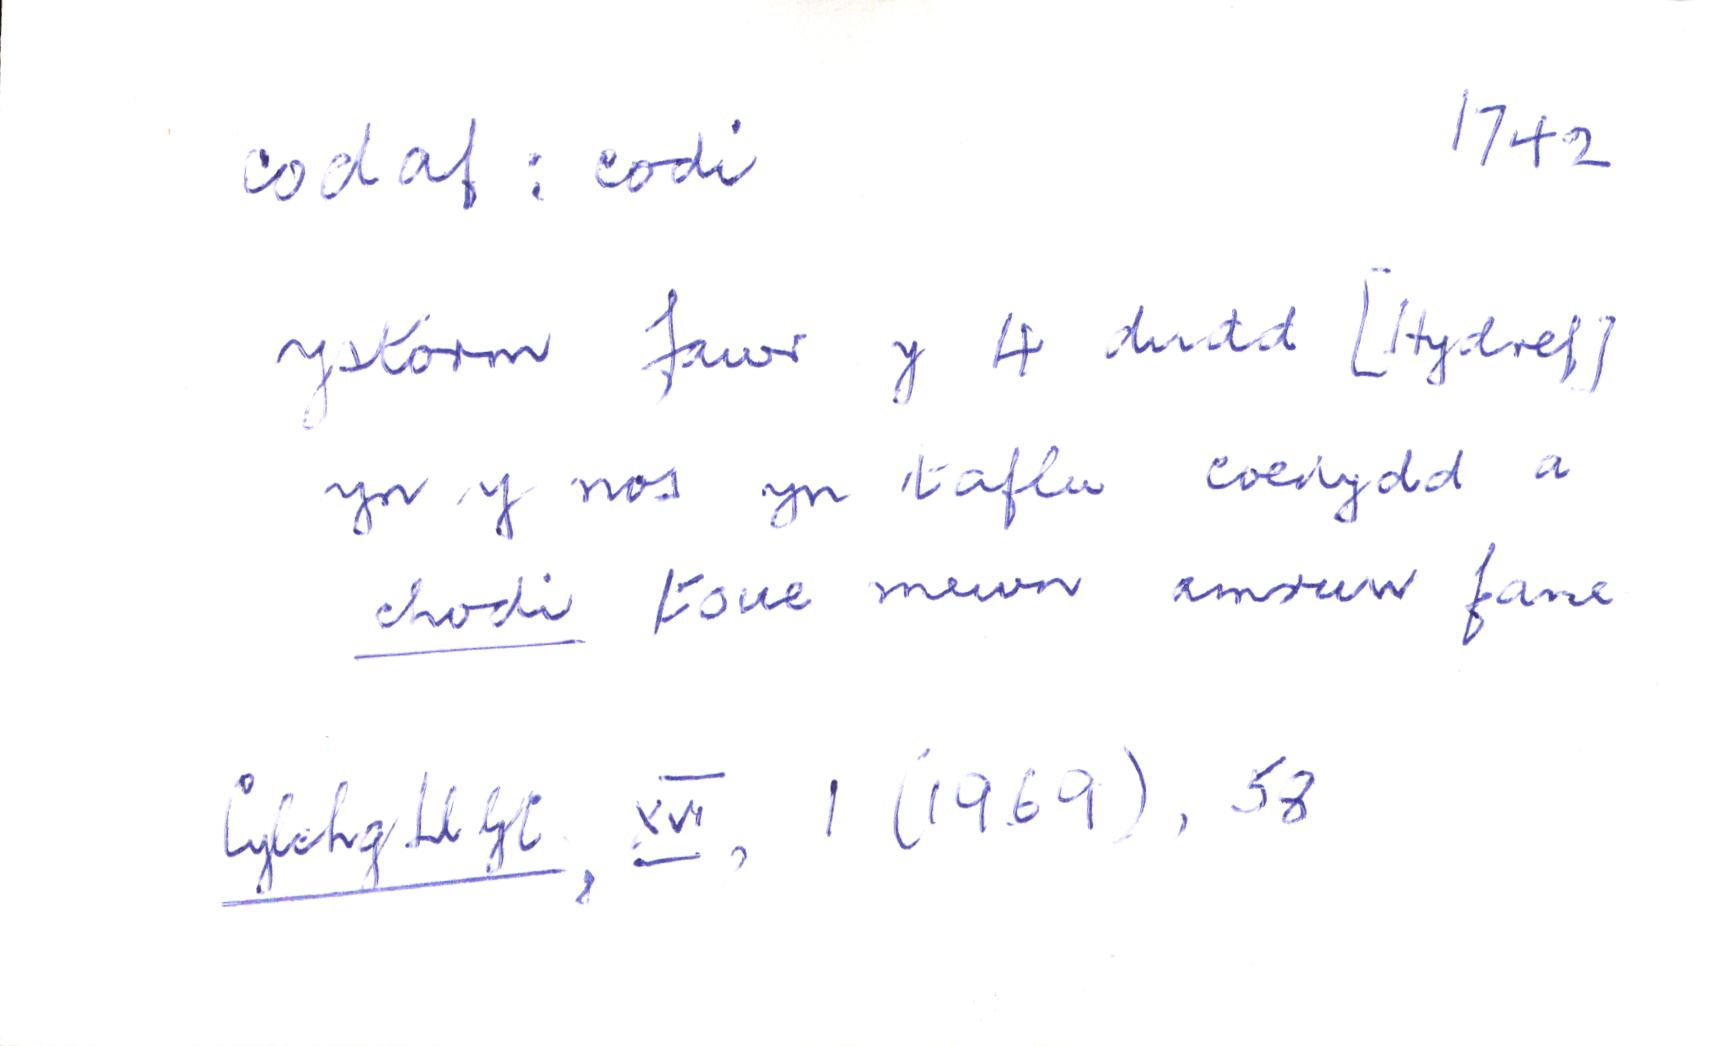 codaf : codi 1742
ystorm fawr y 4 dudd [Hydref]
yn y nos yn taflu coedydd a
chodi toue mewn amruw fane
Cylchg Ll G C, XVI, 1 (1969), 58